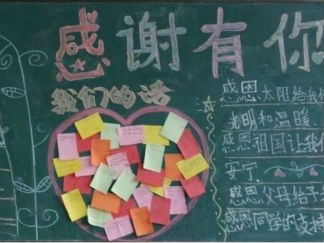 感谢有你
我们的话
感恩太阳给我们
光明和温暖
感恩祖国让我
安宁
感恩父母给予
感恩同学的支持